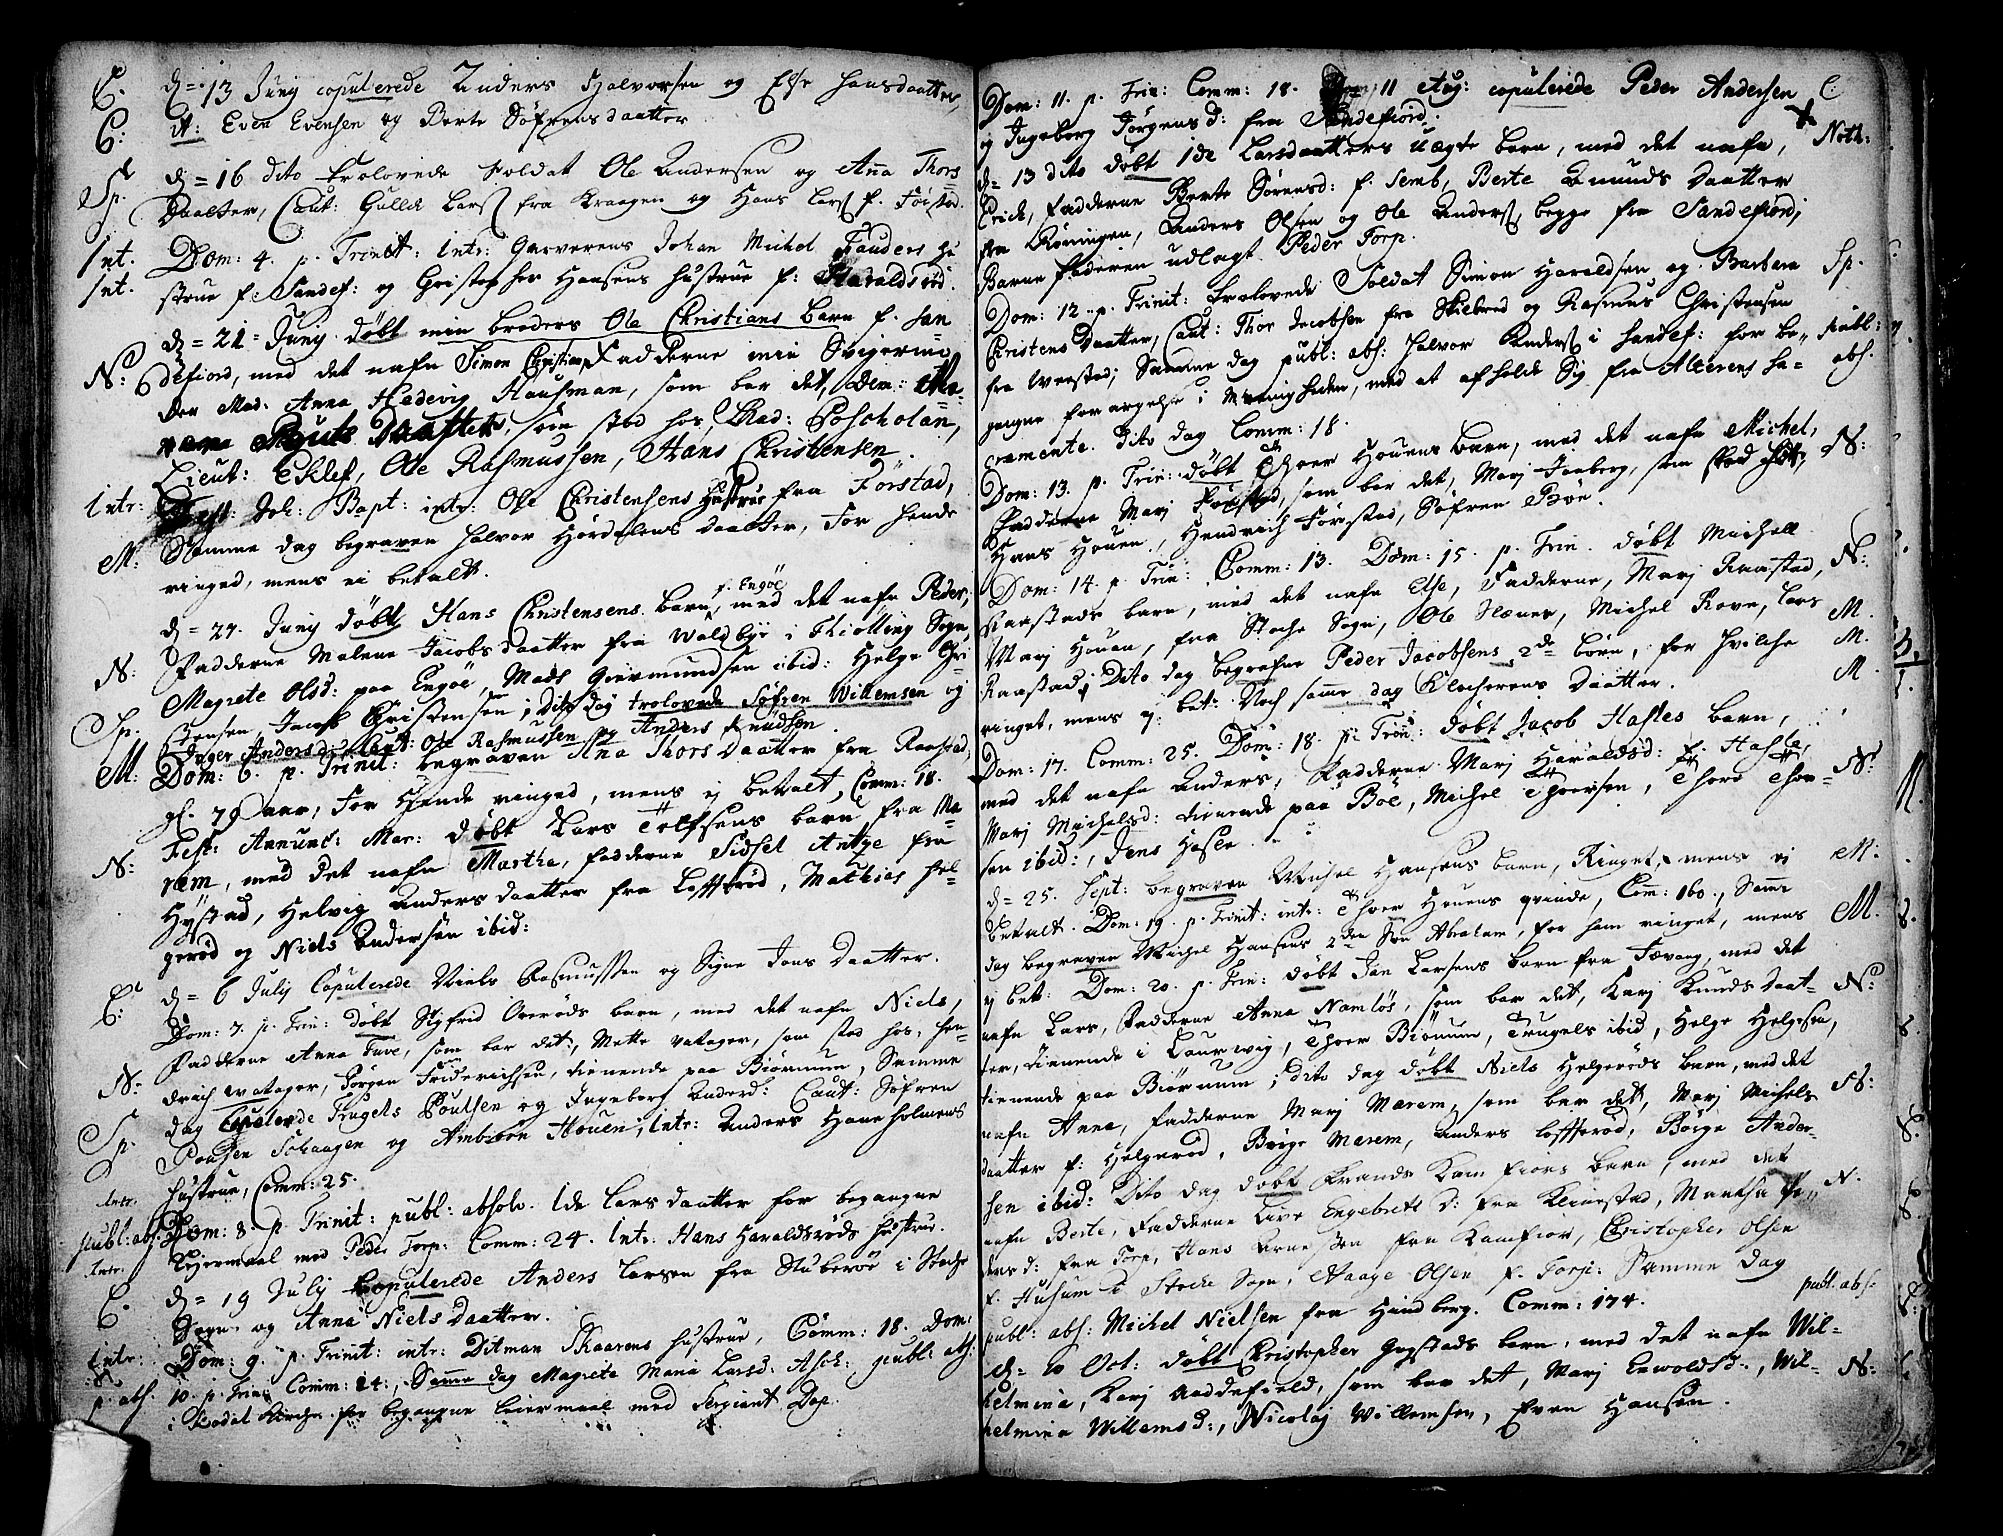 C. d= 13 Junij copulerede Anders Halvorsen og Else Hansdaatter
C: it: Even Evensen og Berte Söfrensdaatter
Sp. d= 16 dito trolovede Soldat Ole Andersen og Aña Thors
Daatter, Caut: Gullik Lars fra Kraagen og Hans Lars f. Förstad.
Int. Dom: 4. p. Trinit: intr: Garverens Johan Michel Fauders hu
Int. strue f: Sandef: og Christopher Hansens hustrue f: Haraldsröd.
d= 21 Junij döbt min broders Ole Christians barn f. San
N: defiord, med det nafn Simon Christian, Fadderne min Svigermo
der Mad: Anna Hedevig Hausman, som bar det, Dem:
som stod hos, Mad: Poscholan,
Lieut: Eklef, Ole Rasmussen, Hans Christensen.
Intr: Fest: Joh: Bapt: intr: Ole Christensens hustrue fra Förstad,
M: Samme dag begraven Halvor Hördalens Daatter, For hende
ringed, mens ei betalt.
f. Engöe
d= 27. Junij döbt Hans Christensens barn, med det nafn Peder,
N: Fadderne Malene Jacobsdaatter fra Waldbye i Thiölling Sogn,
Magrete Olsd: paa Engöe, Mads Giermundsen ibid: Helge Chri
Sp. stensen Jacob Christensen, Dito dag trolovede Söfren Willemsen og
Inger Andersd: Caut: Ole Rasmussen og Anders Knudsen.
M: Dom: 6. p. Trinit: begraven Ana Thorsdaatter fra Raastad,
gl. 79 aar, For hende ringed, mens ej betalt, Comm: 18.
N: Fest: Annunc: Mar: döbt Lars Tolfsens barn fra Ma
rem, med det nafn Martha, fadderne Sidsel Antze fra
Hystad, Helvig Andersdaatter fra Löfferöd, Mathias Hel-
geröd og Niels Andersen ibid:
C: d= 6 Julij Copulerede Niels Rasmussen og Signe Jons Daatter.
Dom: 7. p. Trin: döbt Sigfrid Overöds barn, med det nafn Niels,
Fadderne Anna Tuve, som bar det, Mette Vatager, som stod hos, Hen-
N: drich Watager, Jörgen Friderichsen, tienende paa Biörnum, Samme
Sp. dag Copulerede Trugels Poulsen og Ingeborg Anderd: Caut: Söfren
Poulsen Schaagen og Ambiörn Houen, intr: Anders Haneholmens
Intr. hustrue, Comm: 25.
publ: abs: Dom: 8. p. Trinit: publ: absolv. Ide Larsdaatter for begangne
Intr. Leiermaal med Peder Torp: Comm: 24. Intr: Hans Haraldsröds hustrue.
C. d= 19 Julij Copulerede Anders Larsen fra Stuberöe i Stoche
Sogn og Anna Nielsdaatter.
Intr: Dom: 9. p. Trinit: intr: Ditman Skaarens hustrue, Comm: 18. Dom:
p. abs. 10. p. Trin: Comm: 14., Samme dag Magrete Maria Larsd: Asch: publ: abs:
i Kodal Kirche for begangne leiermaal med Sergiant Dop.
Dom: 11. p. Trin: Comm: 18. 11 Aug: copulerede Peder Andersen C:
og Ingeborg Jörgensd: fra Sandefiord.
d= 13 dito döbt Ide Larsdaatters uægte barn, med det nafn, Noth:
Erich, fadderne Berte Sörensd: f. Semb, Berte Amunds Daatter
fra Röningen, Anders Olsen og Ole Anders, begge fra Sandefiord;
Barnefaderen udlagt Peder Torp.
Dom: 12. p. Trinit: trolovede Soldat Simon Haraldsen og Barbara Sp.
Christens Daatter, Caut: Thor Jacobsen fra Skiebred og Rasmus Christensen
fra Weerstad; Samme dag publ: abs: Halvor Anders i Sandef: for be- publ:
gangne forargelse i Menigheden, med at afholde Sig fra Alterens Sa- abs.
cramente. Dito dag Comm: 18.
Dom: 13. p. Trin: döbt Thoer Houens barn, med det nafn Michel, N:
Fadderne Marj Förstad, som bar det, Marj Aaberg, som stod hos,
Hans Houen, Hendrich Förstad, Söfren Böe.
Dom: 14. p. Trin: Comm: 13. Dom: 15. p. Trin. döbt Michell
Raastads barn, med det nafn Else, Fadderne, Marj Raastad, N:
Marj Houen, fra Stoche Sogn, Ole Namer, Michel Rove, Lars M.
Raastad, Dito dag begrafne Peder Jacobsens 2de börn, for hvilche M.
ringet, mens ej bet: Noch samme dag Klocherens Daatter. M
Dom: 17. Comm: 25. Dom: 18. p. Trin: döbt Jacob Hasles barn,
med det nafn Anders, Fadderne Marj Haraldsd: f. Hasle, N:
Marj Michelsd: tienende paa Böe, Michel Thoersen, Thore Thor-
sen ibid:, Jens Hasle.
d= 25. Sept: begraven Michel Hansens barn, Ringet, mens ei M:
betalt. Dom: 19. p. Trinit: intr: Thoer Houens qvinde, Com: 160., Samme
dag begraven Michel Hansens 2den Sön Abraham, for ham ringet, mens M.
ej bet: Dom: 20. p. Trin: döbt Jan Larsens barn fra Fævang, med det
nafn Lars, Fadderne Anna Namlös, som bar det, Karj Knuds Daat- N:
ter, tienende i Laurwig, Thoer Biönum, Trugels ibid, Helge Helgesen,
tienende paa Biörnum; Dito dag döbt Niels Helgeröds barn, med det
nafn Anna, fadderne Marj Marem, som bar det, Marj Michels N:
daatter f: Helgeröd, Börge Marem, Anders Löfferöd, Börge Ander-
sen ibid: Dito dag döbt Frands Kamfiors barn, med det
nafn Berte, Fadderne Live Engebrett D: fra Kleivestad, Martha Pe- N.
dersd: fra Torp, Hans Arnesen fra Kamfior, Christopher Olsen
f. Husum i Stoche Sogn, Haage Olsen f. Torp: Samme Dag
publ: abs: Michel Nielsen fra Hundberg. Comm: 174. publ: abs:
d= 10 Oct: döbt Christopher Gogstads barn, med det nafn Wil-
helmina, Karj Raddefield, som bar det, Marj Ewoldsd:, Wil- N:
helmina Willemsd:, Nicolaj Willemsen, Even Hansen.